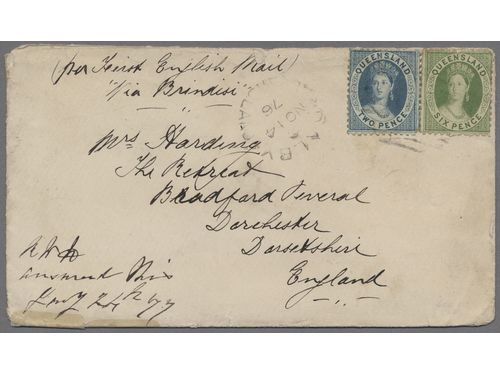 (per First English Mail)
"Via Brindisi"
QUEENSLAND
TWO PENCE
QUEENSLAND
SIX PENCE
NO 14
76
Mrs Harding
The Retreat
Bradford Peveral
Dorchester
Dorsetshire
England
answered this
24th 77